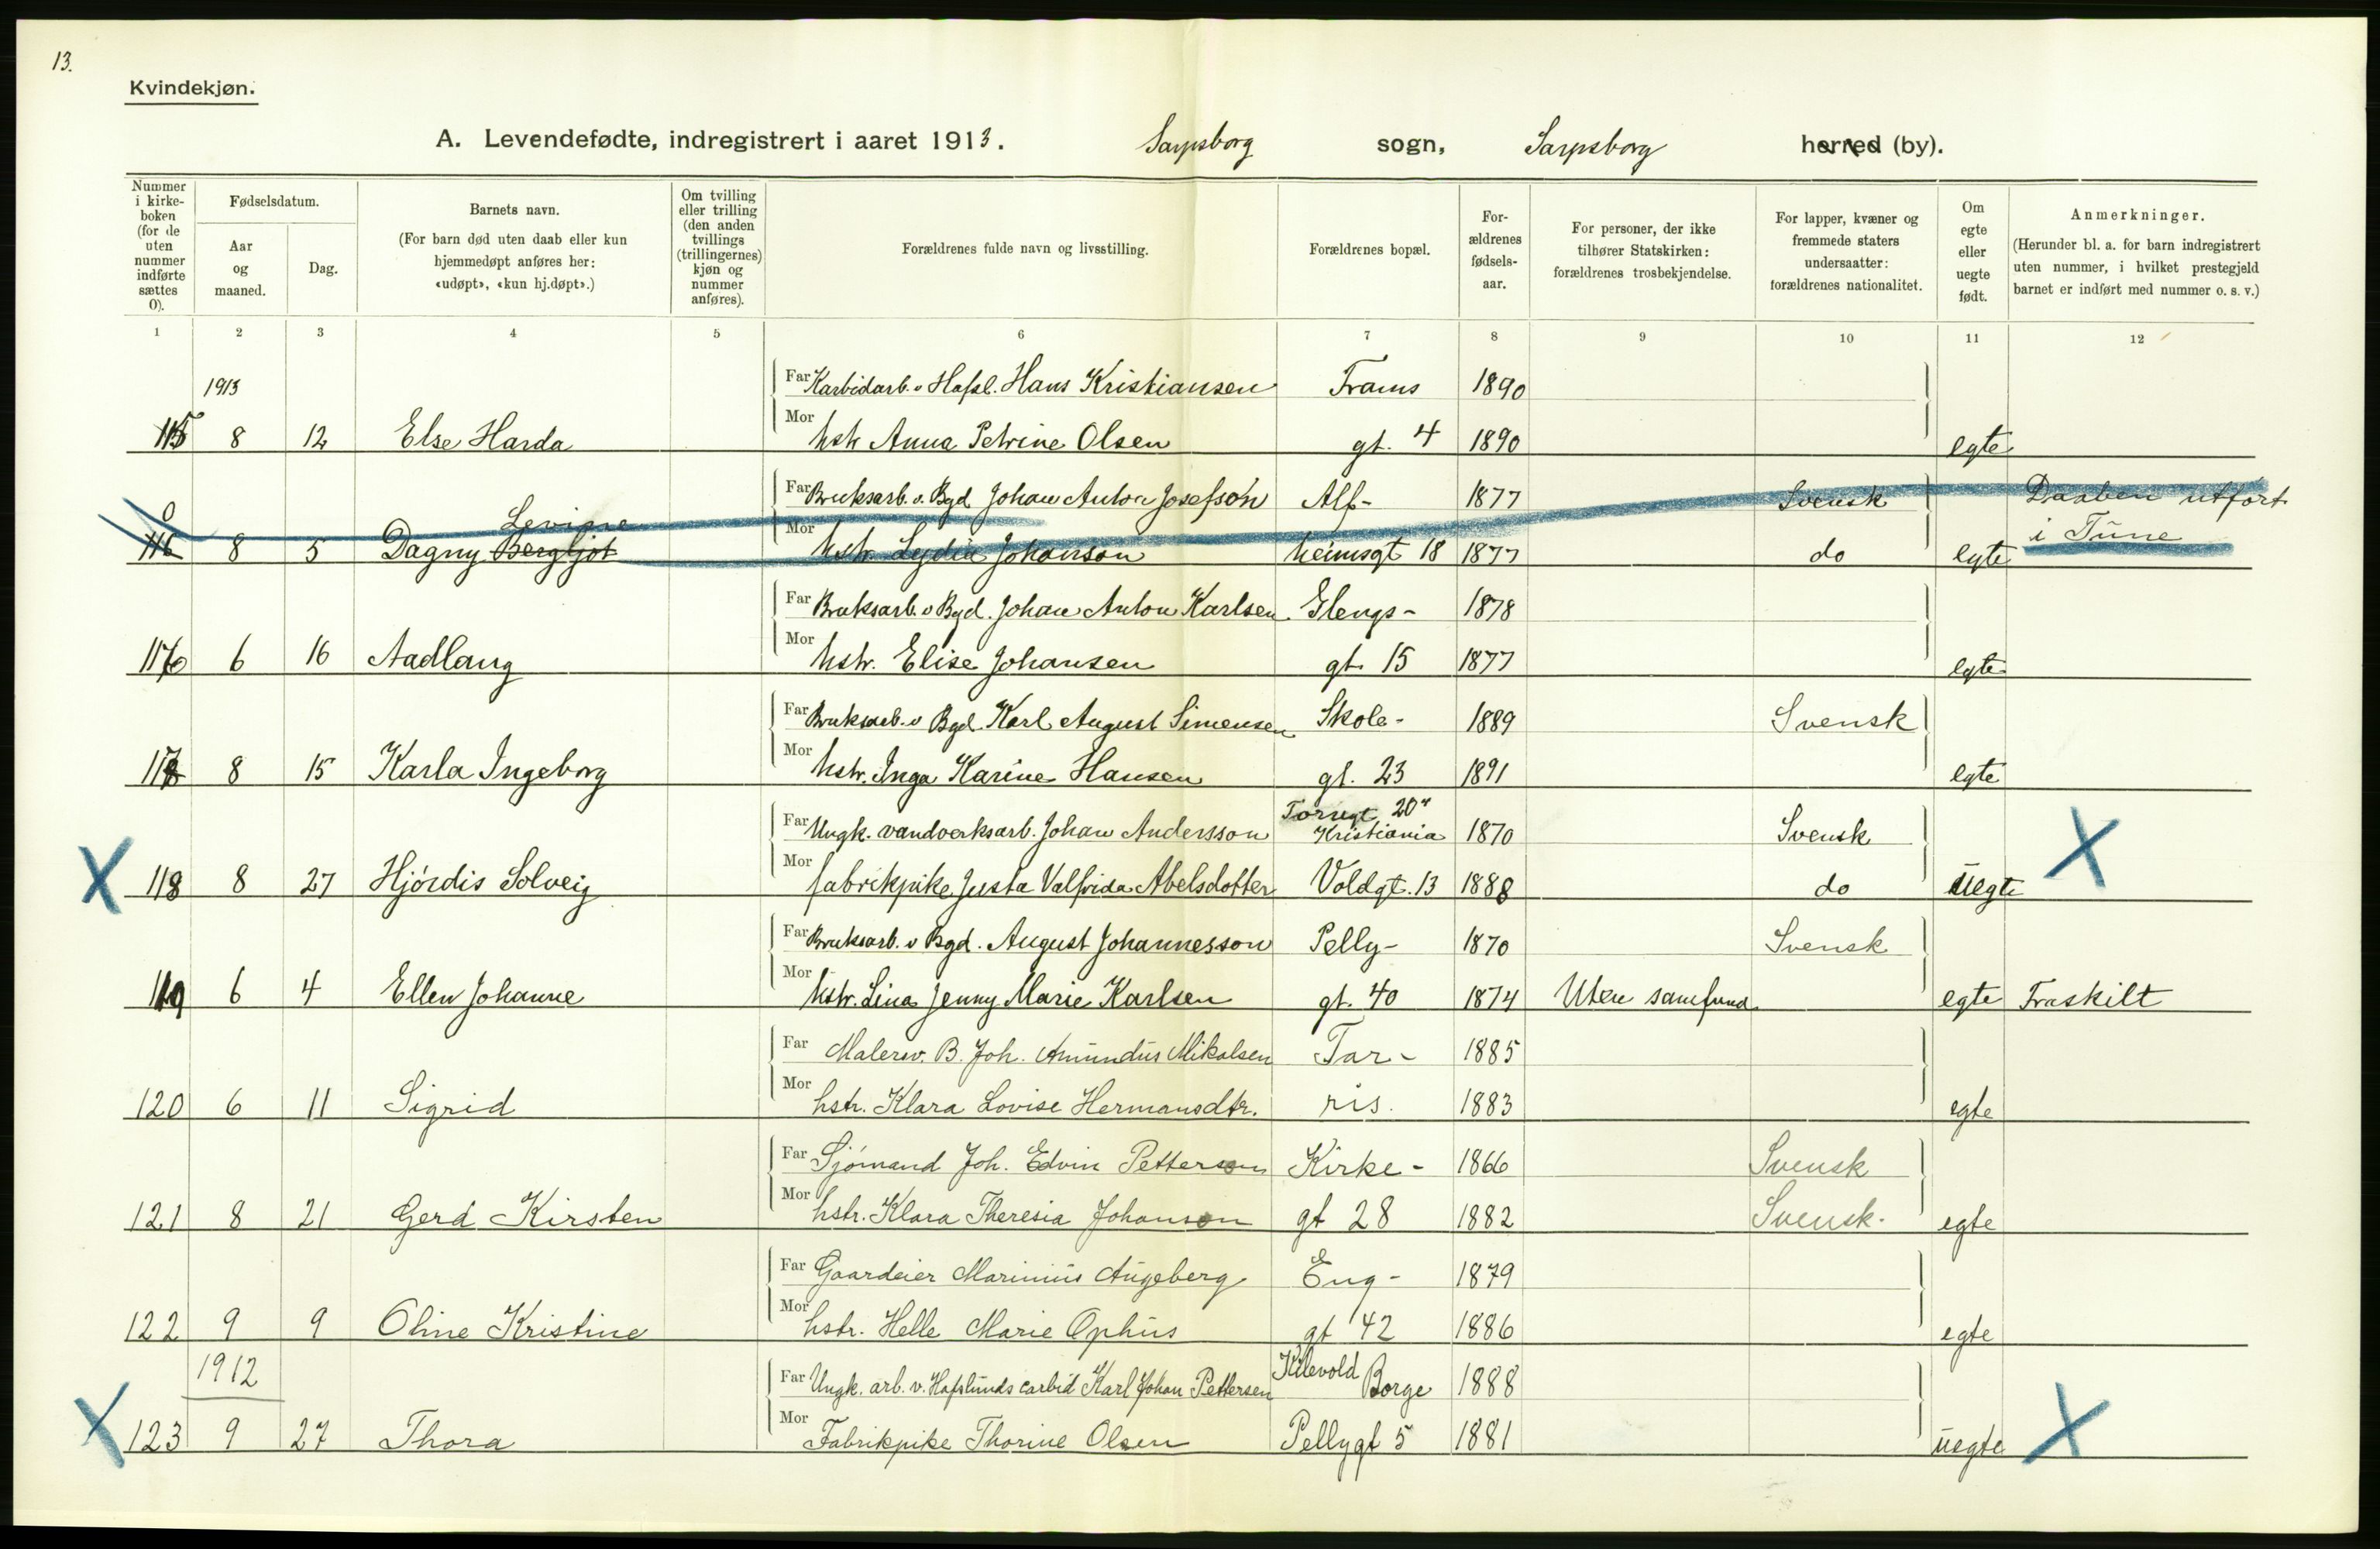 13.
Kvindekjøn.
A. Levendefødte, indregistrert i aaret 1913. Sarpsborg sogn, Sarpsborg herred (by).
Nummer i kirkeboken (for de uten nummer indførte sættes 0).
Fødselsdatum.
Aar og maaned.
Dag.
Barnets navn.
(For barn død uten daab eller kun hjemmedøpt anføres her: «udøpt», «kun hj.døpt».)
Om tvilling eller trilling (den anden tvillings (trillingernes) kjøn og nummer anføres).
Forældrenes fulde navn og livsstilling.
Forældrenes bopæl.
For-ældrenes fødsels-aar.
For personer, der ikke tilhører Statskirken: forældrenes trosbekjendelse.
For lapper, kvæner og fremmede staters undersaatter: forældrenes nationalitet.
Om egte eller uegte født.
Anmerkninger.
(Herunder bl. a. for barn indregistrert uten nummer, i hvilket prestegjeld barnet er indført med nummer o. s. v.)
1 2 3 4 5 6 7 8 9 10 11 12
1913 Far Karbidarb. v Hafsl. Hans Kristiansen Frams 1890
115 8 12 Else Harda Mor hstr Anna Petrine Olsen gt. 4 1890 egte
0 Levine Far Bruksarb. v. Bgd Johan Anton Josefson Alf- 1877 Svensk Daaben utført
116 8 5 Dagny Bergljot Mor hstr. Lydia Johanson heimsgt 18 1877 do egte i Tune
Far Bruksarb. v Bgd. Johan Anton Karlsen Glengs- 1878
116 6 16 Aadlaug Mor hstr. Elise Johansen gt. 15 1877 egte
Far Bruksarb. v Bgd. Karl August Simensen Skole- 1889 Svensk
117 8 15 Karla Ingeborg Mor hstr. Inga Karine Hansen gt. 23 1891 egte
Far Ungk. vandverksarb. Johan Andersson Torvgt 20 Kristiania 1870 Svensk
X 118 8 27 Hjørdis Solveig Mor fabrikpike Justa Valfrida Abelsdotter Voldgt. 13 1888 do uegte X
Far Bruksarb. v Bgd. August Johannesson Pelly- 1870 Svensk
119 6 4 Ellen Johanne Mor hstr. Lina Jenny Marie Karlsen gt. 40 1874 Uten samfund egte Fraskilt
Far Malersv. B. Joh. Amundus Mikalsen Tar- 1885
120 6 11 Sigrid Mor hstr. Klara Lovise Hermansdtr. ris. 1883 egte
Far Sjømand Joh. Edvin Petterson Kirke- 1866 Svensk
121 8 21 Gerd Kirsten Mor hstr. Klara Theresia Johanson gt 28 1882 Svensk. egte
Far Gaardeier Marinius Augeberg Eng- 1879
122 9 9 Oline Kristine Mor hstr. Helle Marie Ophus gt 42 1886 egte
1912 Far Ungk. arb. v. Hafslunds carbid Karl Johan Pettersen Kilevold Borge 1888
X 123 9 27 Thora Mor Fabrikpike Thorine Olsen Pellygt 5 1881 uegte X